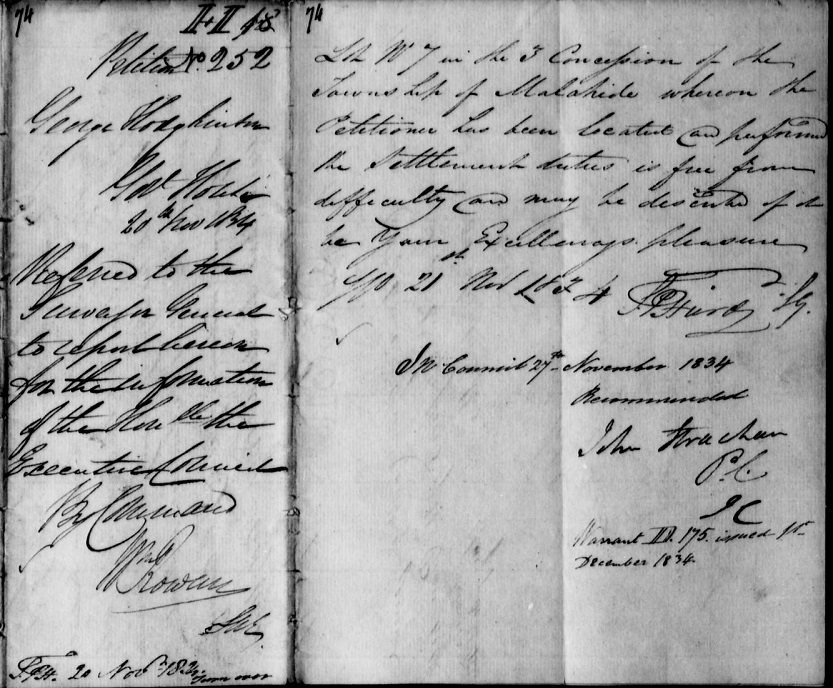 74
Petition No. 252
George Hodgkinson
Govt House
20th Nov 1834
Referred to the
Surveyor General
to report hereon
for the information
of the Honble the
Executive Council
By Command
Wm Rowan
S.P.H. 20 Novr 1834
Turn over
74
Lot No 7 in the 3 Concession of the
Township of Malahide whereon the
Petitioner has been located and performed
the Settlement duties is free from
difficulty and may be described if it
be Your Excellency's pleasure
SGO 21st Nov 1834
S.P. Hurd SG.
In Council 27th November 1834
Recommended
John Strachan
P.C.
Warrant 175. issued 1st
December 1834